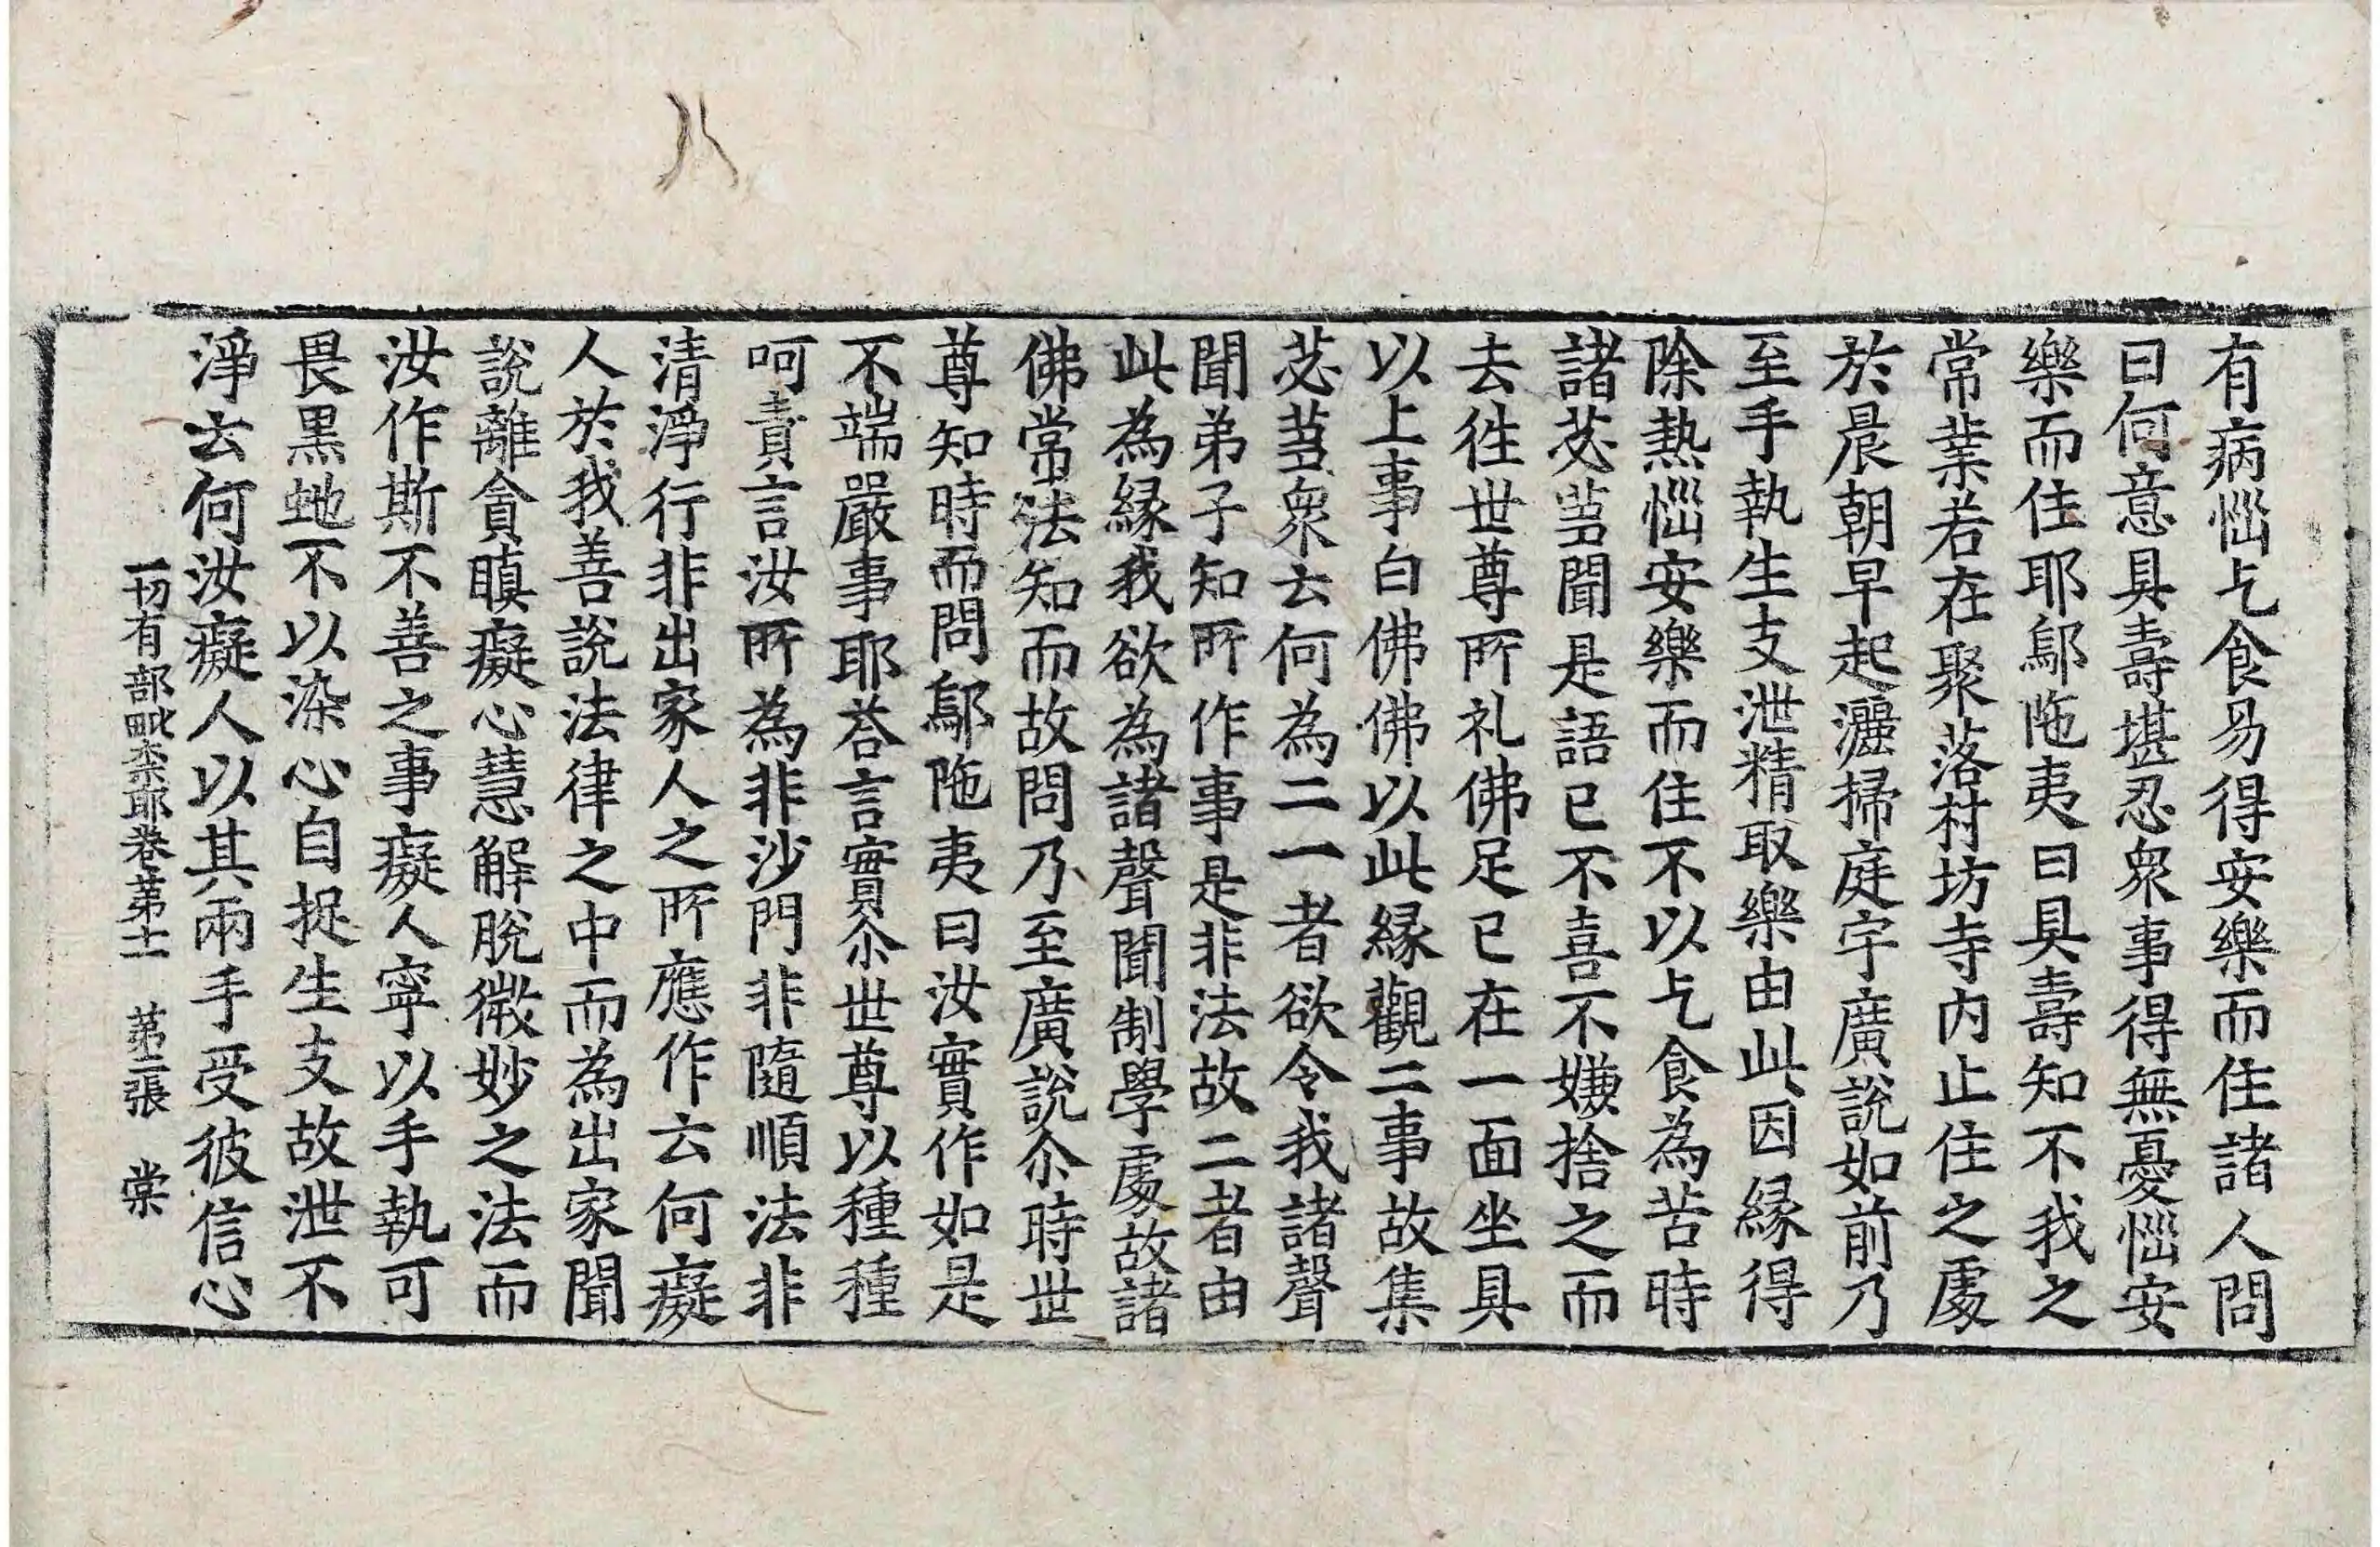 有病惱乞食易得安樂而住諸人問
曰何意具壽堪忍衆事得無憂惱安
樂而住耶鄔陁夷曰具壽知不我之
常業若在聚落村坊寺内止住之處
於晨朝早起灑掃庭宇廣説如前乃
至手執生支泄精取樂由此因縁得
除熱惱安樂而住不以乞食為苦時
諸苾蒭聞是語已不喜不嫌捨之而
去徃世尊所礼佛足已在一面坐具
以上事白佛佛以此縁觀二事故集
苾蒭衆云何為二一者欲令我諸聲
聞弟子知所作事是非法故二者由
此為縁我欲為諸聲聞制學處故諸
佛常法知而故問乃至廣説尒時世
尊知時而問鄔陁夷曰汝實作如是
不端嚴事耶荅言實尒世尊以種種
呵責言汝所為非沙門非隨順法非
清淨行非出家人之所應作云何癡
人於我善説法律之中而為出家聞
説離貪瞋癡心慧解脫微妙之法而
汝作斯不善之事癡人寧以手執可
畏黑虵不以染心自捉生支故泄不
淨云何汝癡人以其兩手受彼信心
一切有部毗奈耶卷苐十一　苐二張　棠